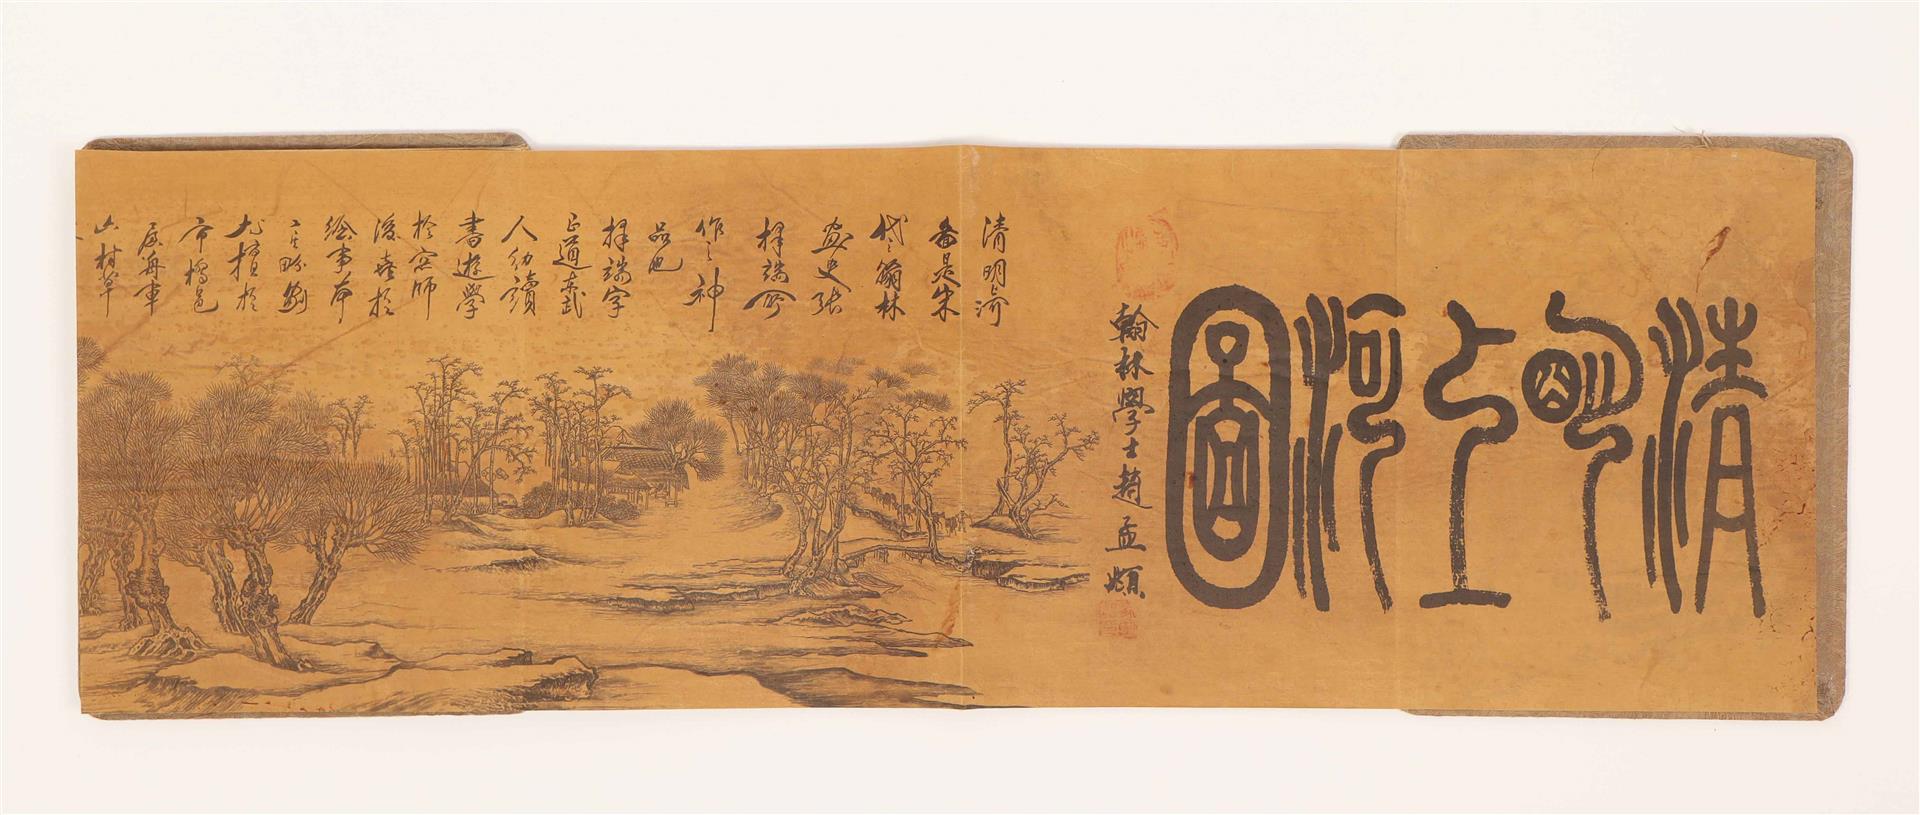 清明上河圖
翰林學士趙孟頫
清明上河
番是宋
代翰林
畫史張
擇端所
作之神
品也
擇端字
正道東武
人幼讀
書遊學
於京師
後喜於
繪事本
工
尤擅於
市橋邑
屋舟車
山村草